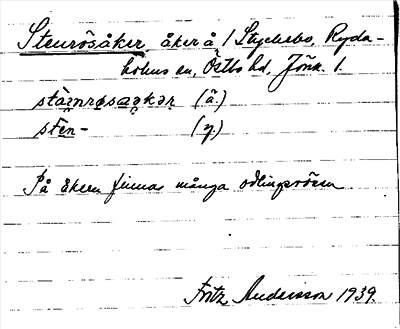 Stenrösåker, åker å 1 Stychebo, Ryda-
holms sn, Östbo hd, Jönk. l.
stàinrøsaqkər (ä.)
stēn- (y.)
På åkern finnas många odlingsrösen
Fritz Andersson 1939.